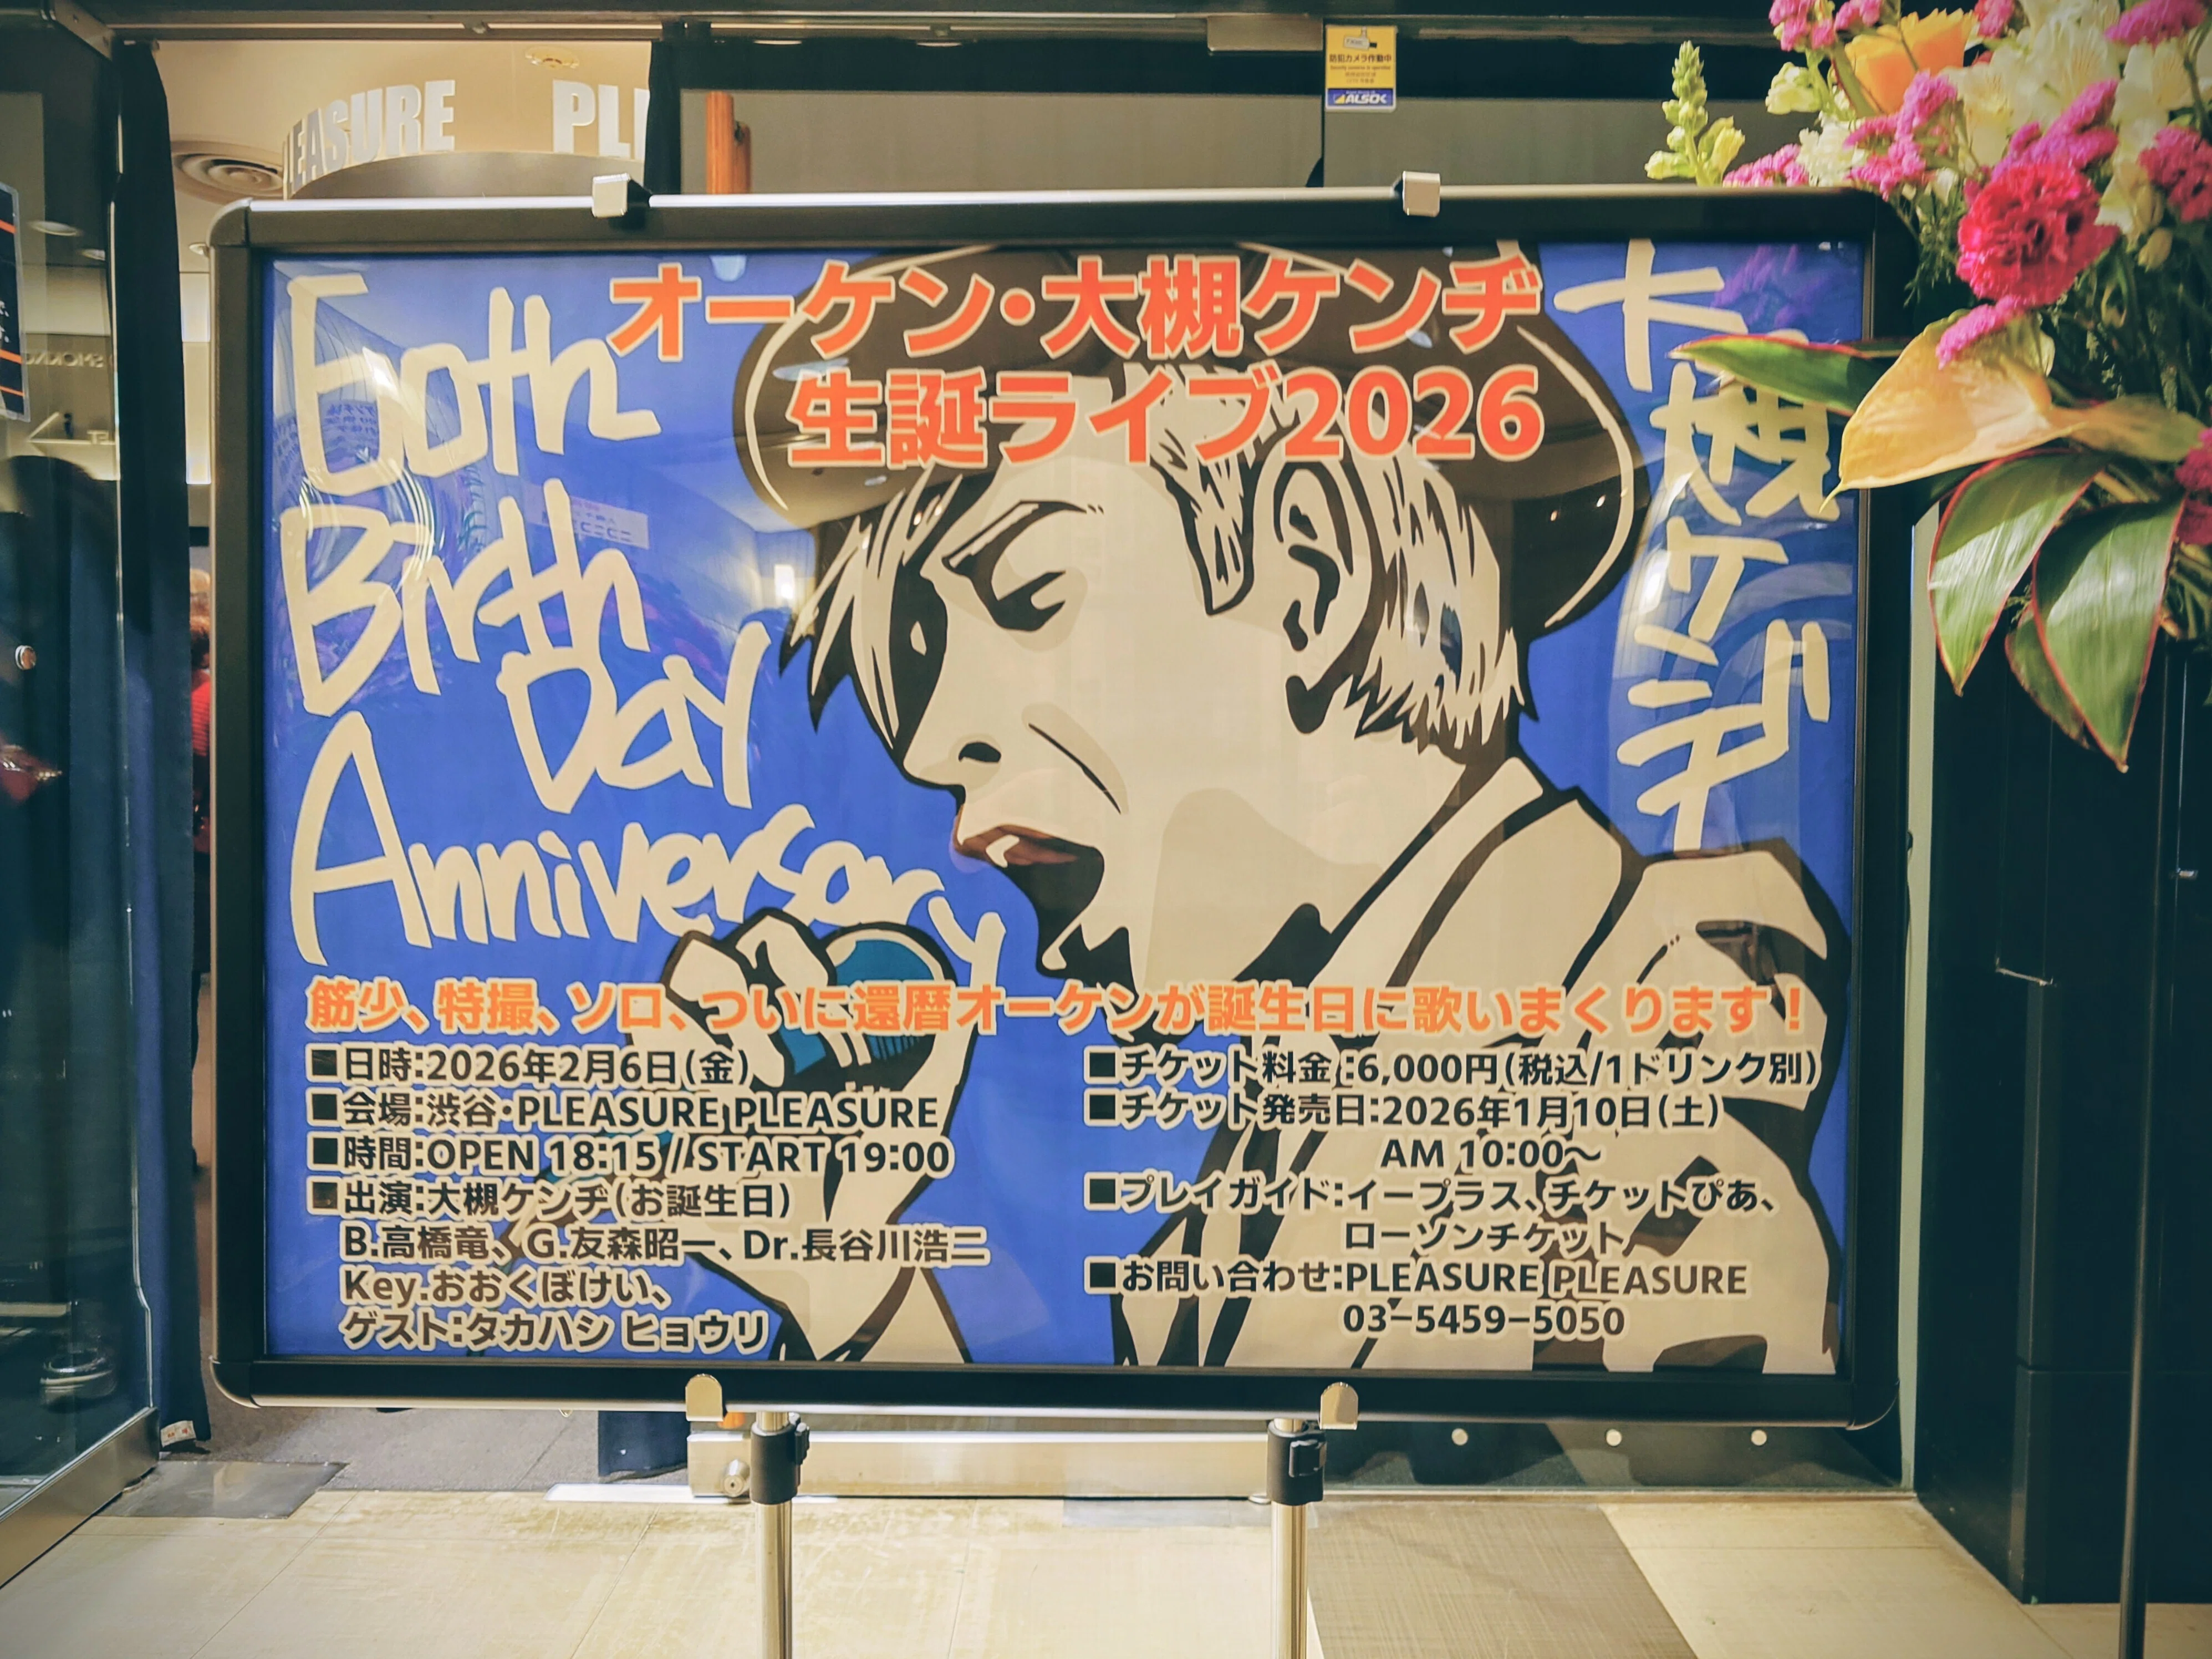 PLEASURE PLE
防犯カメラ作動中
ALSOK
オーケン・大槻ケンヂ
生誕ライブ2026
60th
Birth
Day
Anniversary
大槻ケンヂ
筋少、特撮、ソロ、ついに還暦オーケンが誕生日に歌いまくります！
■日時:2026年2月6日(金)
■会場:渋谷・PLEASURE PLEASURE
■時間:OPEN 18:15 / START 19:00
■出演:大槻ケンヂ(お誕生日)
B.高橋竜、G.友森昭一、Dr.長谷川浩二
Key.おおくぼけい、
ゲスト:タカハシ ヒョウリ
■チケット料金:6,000円(税込/1ドリンク別)
■チケット発売日:2026年1月10日(土)
AM 10:00～
■プレイガイド:イープラス、チケットぴあ、
ローソンチケット
■お問い合わせ:PLEASURE PLEASURE
03-5459-5050